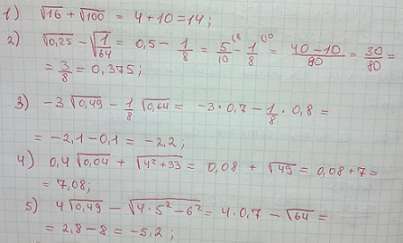 1) √16 + √100 = 4 + 10 = 14;
2) √0,25 - √(1/64) = 0,5 - 1/8 = 5/10 (8 - 1/8 (10 = (40-10)/80 = 30/80 =
= 3/8 = 0,375;
3) -3√0,49 - 1/8 √0,64 = -3·0,7 - 1/8 · 0,8 =
= -2,1 - 0,1 = -2,2;
4) 0,4√0,04 + √(4² + 33) = 0,08 + √49 = 0,08 + 7 =
= 7,08;
5) 4√0,49 - √(4·5² - 6²) = 4·0,7 - √64 =
= 2,8 - 8 = -5,2;